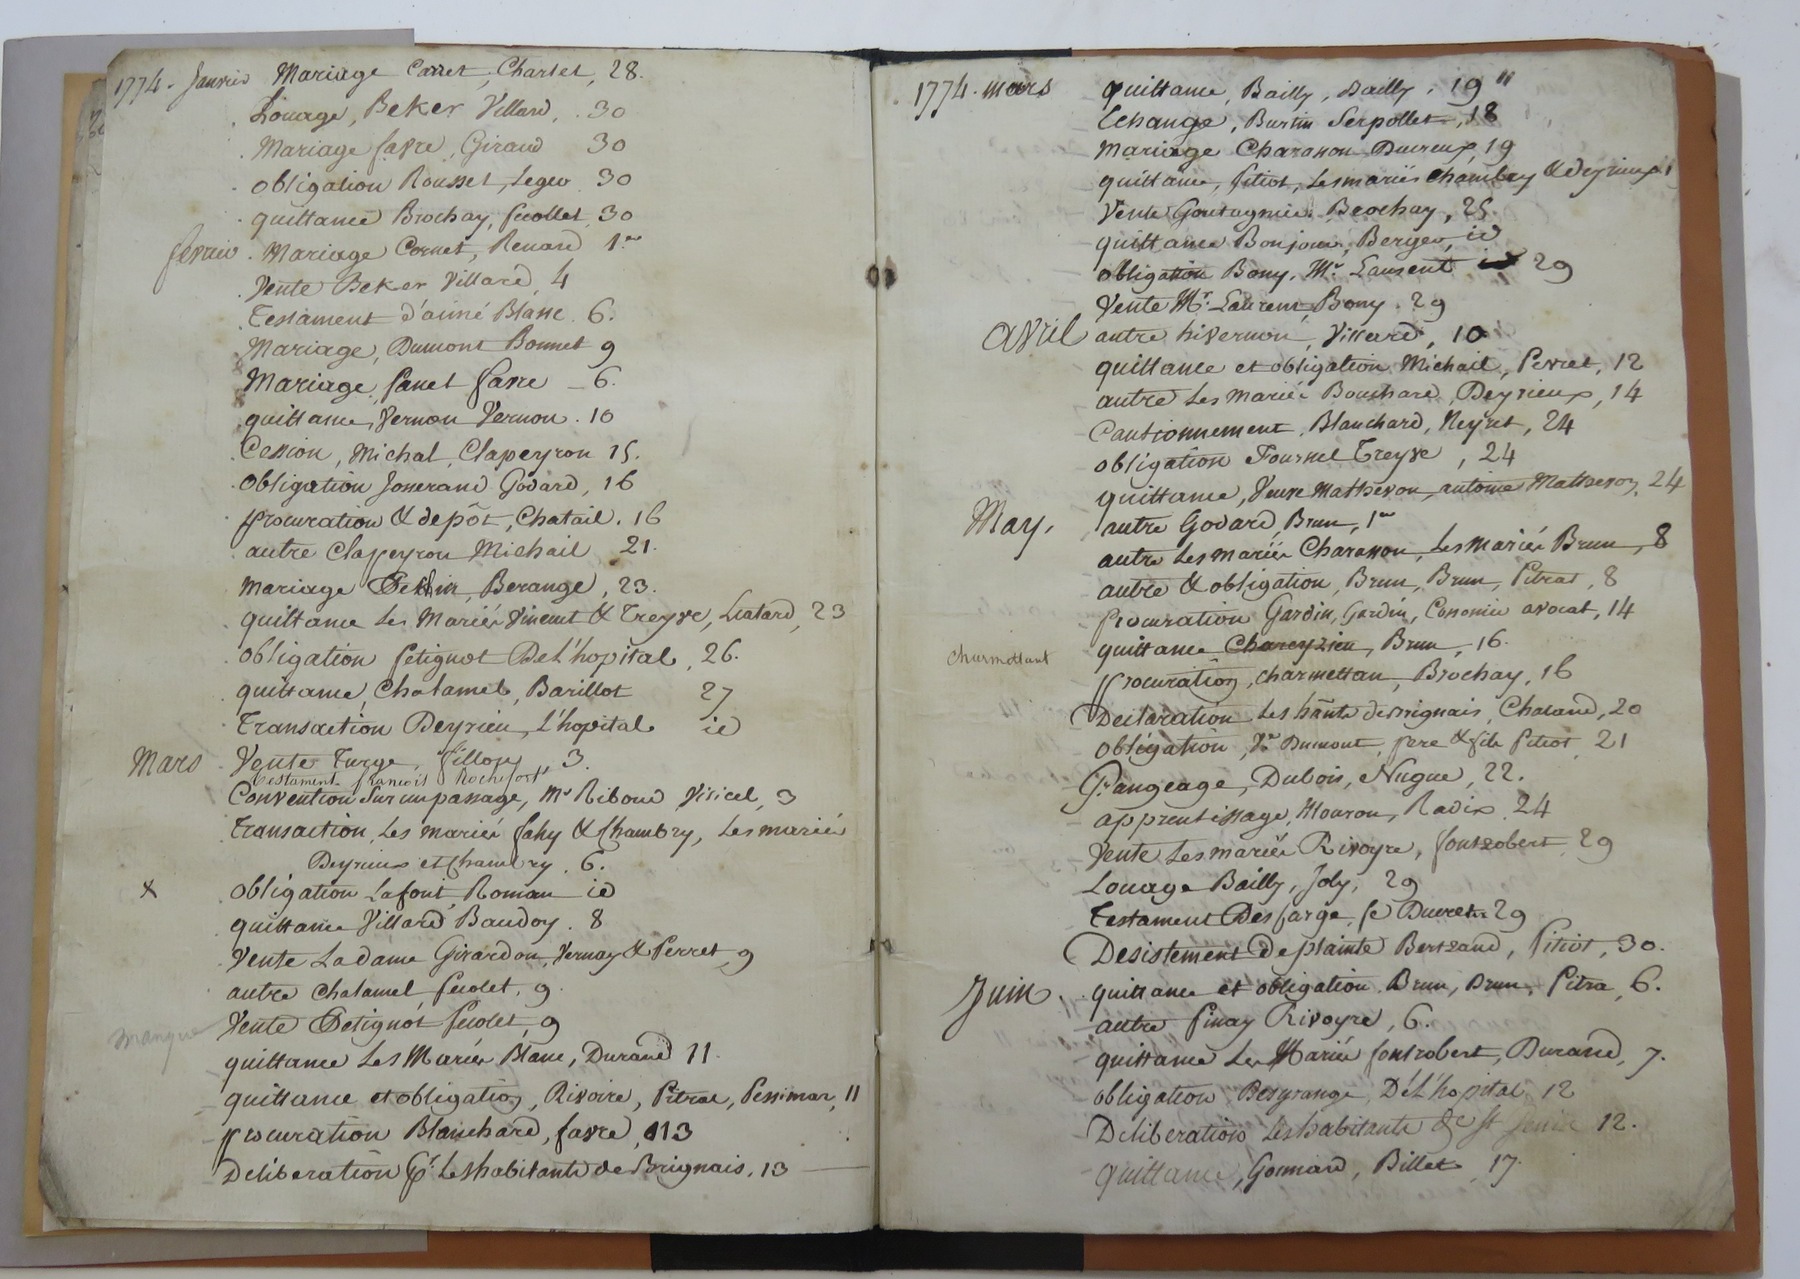 1774. Janvier Mariage Carret, Charlet, 28.
Louage, Beker Villard, 30
Mariage favre, Giraud 30
obligation Rousset, Leger 30
quittance Brochay, ficollet, 30
fevrier. Mariage Cornet, Renard 1.er
Vente Beker Villard, 4
Testament d'aimé Blanc. 6.
Mariage, Dumont Bonnet 9
Mariage, fanet favre - 6.
quittance, Vernon Vernon. 10
Cession, Michal, Clapeyron 15.
obligation Josserand Godard, 16
procuration & depôt, Chatail. 16
autre Clapeyron Michail 21.
mariage Berange, 23.
quittance Les Mariés Vincent & Treyve, Liatard, 23
obligation petignot De L'hopital, 26.
quittance, Chatamel, Barillot 27
Transaction Deyrieu, L'hopital id
Mars Vente Turge, fillon, 3.
testament françois Rochefort
Convention Sur un passage, Mr Riboud Viricel, 3
transaction, Les mariés fahy & Chambry, Les mariés
Deyrieux et Chambry. 6.
x obligation Lafont, Roman id
quittance Villard Baudoy. 8
Vente La dame Girardon, Vernay & Perret, 9
autre Chatamel, ficolet, 9.
manque Vente Petignot ficolet, 9
quittance Les Mariés Blanc, Durand 11.
quittance et obligation, Rivoire, Pitrat, Pessimar, 11
procuration Blanchard, favre, 13
Déliberation pr. Les habitants de Brignais, 13
1774. mars quittance, Bailly, Bailly, 19
Echange, Burtin Serpollet, 18
mariage Charasson Ducreux, 19
quittance, pitiot, Les mariés Chambry & deyrieux
Vente Goutagnieu Brochay, 25.
quittance Bonjour, Berger, id
obligation Bony, Mr. Laurent 29
Vente Mr. Laurent Bony. 29
avril autre hivernon, Villard, 10
quittance et obligation Michail, Perret, 12
autre Les mariés Bouchard, Deyrieux, 14
Cautionnement, Blanchard, Neyret, 24
obligation Fournel Treyve, 24
quittance, Veuve Mathevon, antoine Mathevon, 24
May. autre Godard, Brun, 1er
autre Les mariés Charasson, Les mariés Brun, 8
autre & obligation, Brun, Brun, Pitrat, 8
procuration Gardin, Gardin, avocat, 14
quittance Chareyzieu, Brun, 16.
charmettant procuration, charmettan, Brochay, 16
Declaration Les hants de Brignais, Chaland, 20
obligation, Ve Dumont, pere & fils Pitiot 21
Grangeage, Dubois, Nugue, 22.
apprentissage, Mouron, Radix 24
Vente Les mariés Rivoyre, fontrobert 29
Louage Bailly, Joly, 29
testament Desfarge, fe Ducret 29
Desistement de plainte Bertrand, Pitiot, 30.
Juin. quittance et obligation Brun, Brun, Pitra, 6.
autre finay Rivoyre, 6.
quittance Les Mariés fontrobert, Durand, 7.
obligation Besgrange, De L'hopital, 12
Deliberation Les habitants de st 12.
quittance, Gonnard, Billet, 17.